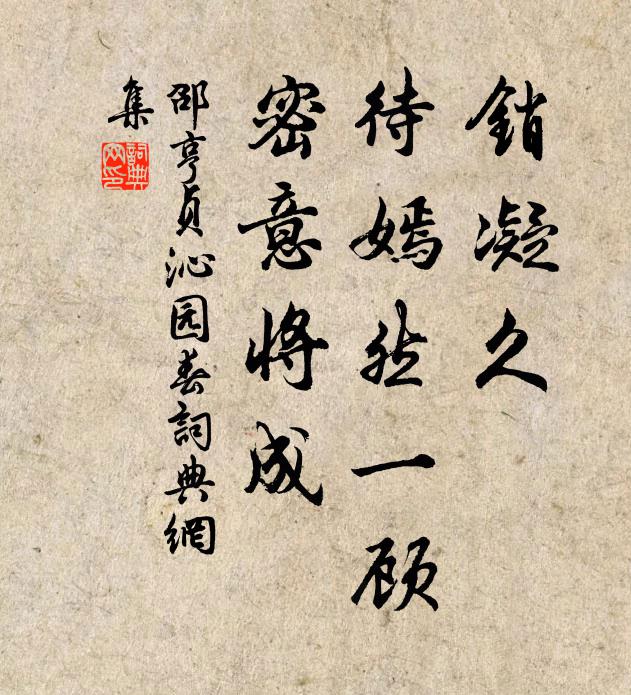 銷凝久
待嫣然一顾
密意將成
邵亨貞沁园春詞典網
集
詞典
网印